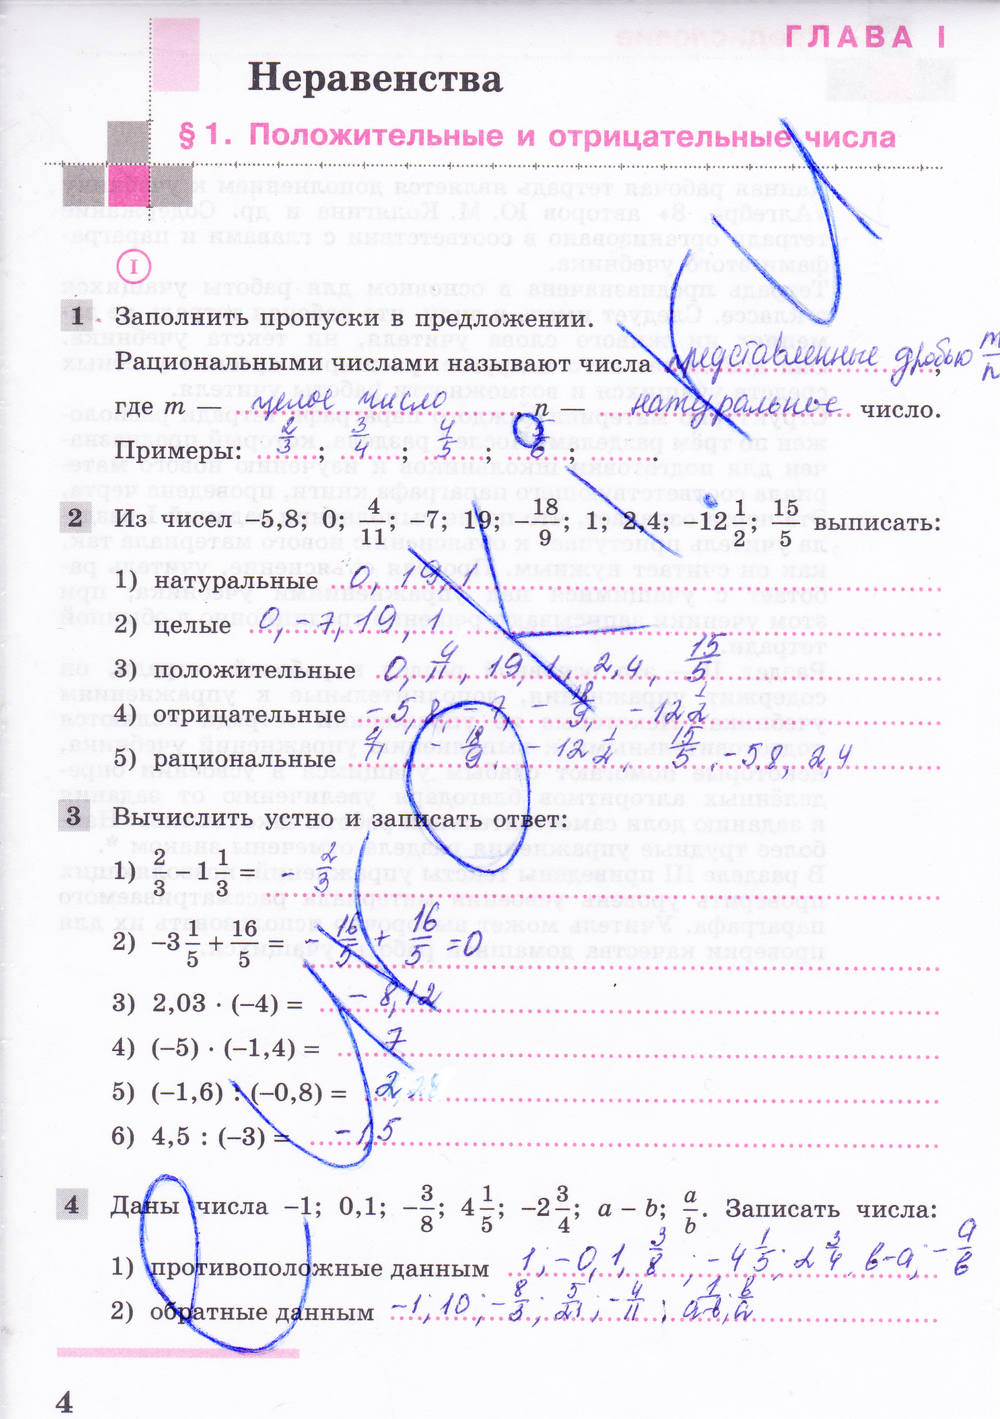 ГЛАВА I
Неравенства
§ 1. Положительные и отрицательные числа
I
1 Заполнить пропуски в предложении.
Рациональными числами называют числа представленные дробью m/n,
где m целое число, n — натуральное число.
Примеры: 2/3; 3/4; 4/5; 5/6; .
2 Из чисел –5,8; 0; 4/11; –7; 19; –18/9; 1; 2,4; –12 1/2; 15/5 выписать:
1) натуральные 0, 19, 1
2) целые 0, –7, 19, 1
3) положительные 0, 4/11, 19, 1, 2,4, 15/5
4) отрицательные –5,8, –7, –18/9, –12 1/2
5) рациональные 4/11, 18/9, 12 1/2, 15/5, –5,8, 2,4
3 Вычислить устно и записать ответ:
1) 2/3 – 1 1/3 = – 2/3
2) –3 1/5 + 16/5 = – 16/5 + 16/5 = 0
3) 2,03 · (–4) = – 8,12
4) (–5) · (–1,4) = 7
5) (–1,6) : (–0,8) = 2
6) 4,5 : (–3) = –1,5
4 Даны числа –1; 0,1; –3/8; 4 1/5; –2 3/4; a – b; a/b. Записать числа:
1) противоположные данным 1; –0,1, 3/8; –4 1/5; 2 3/4, в–а, – а/в
2) обратные данным –1; 10; –8/3; 5/21; –4/11; 1/а–в; в/а
4